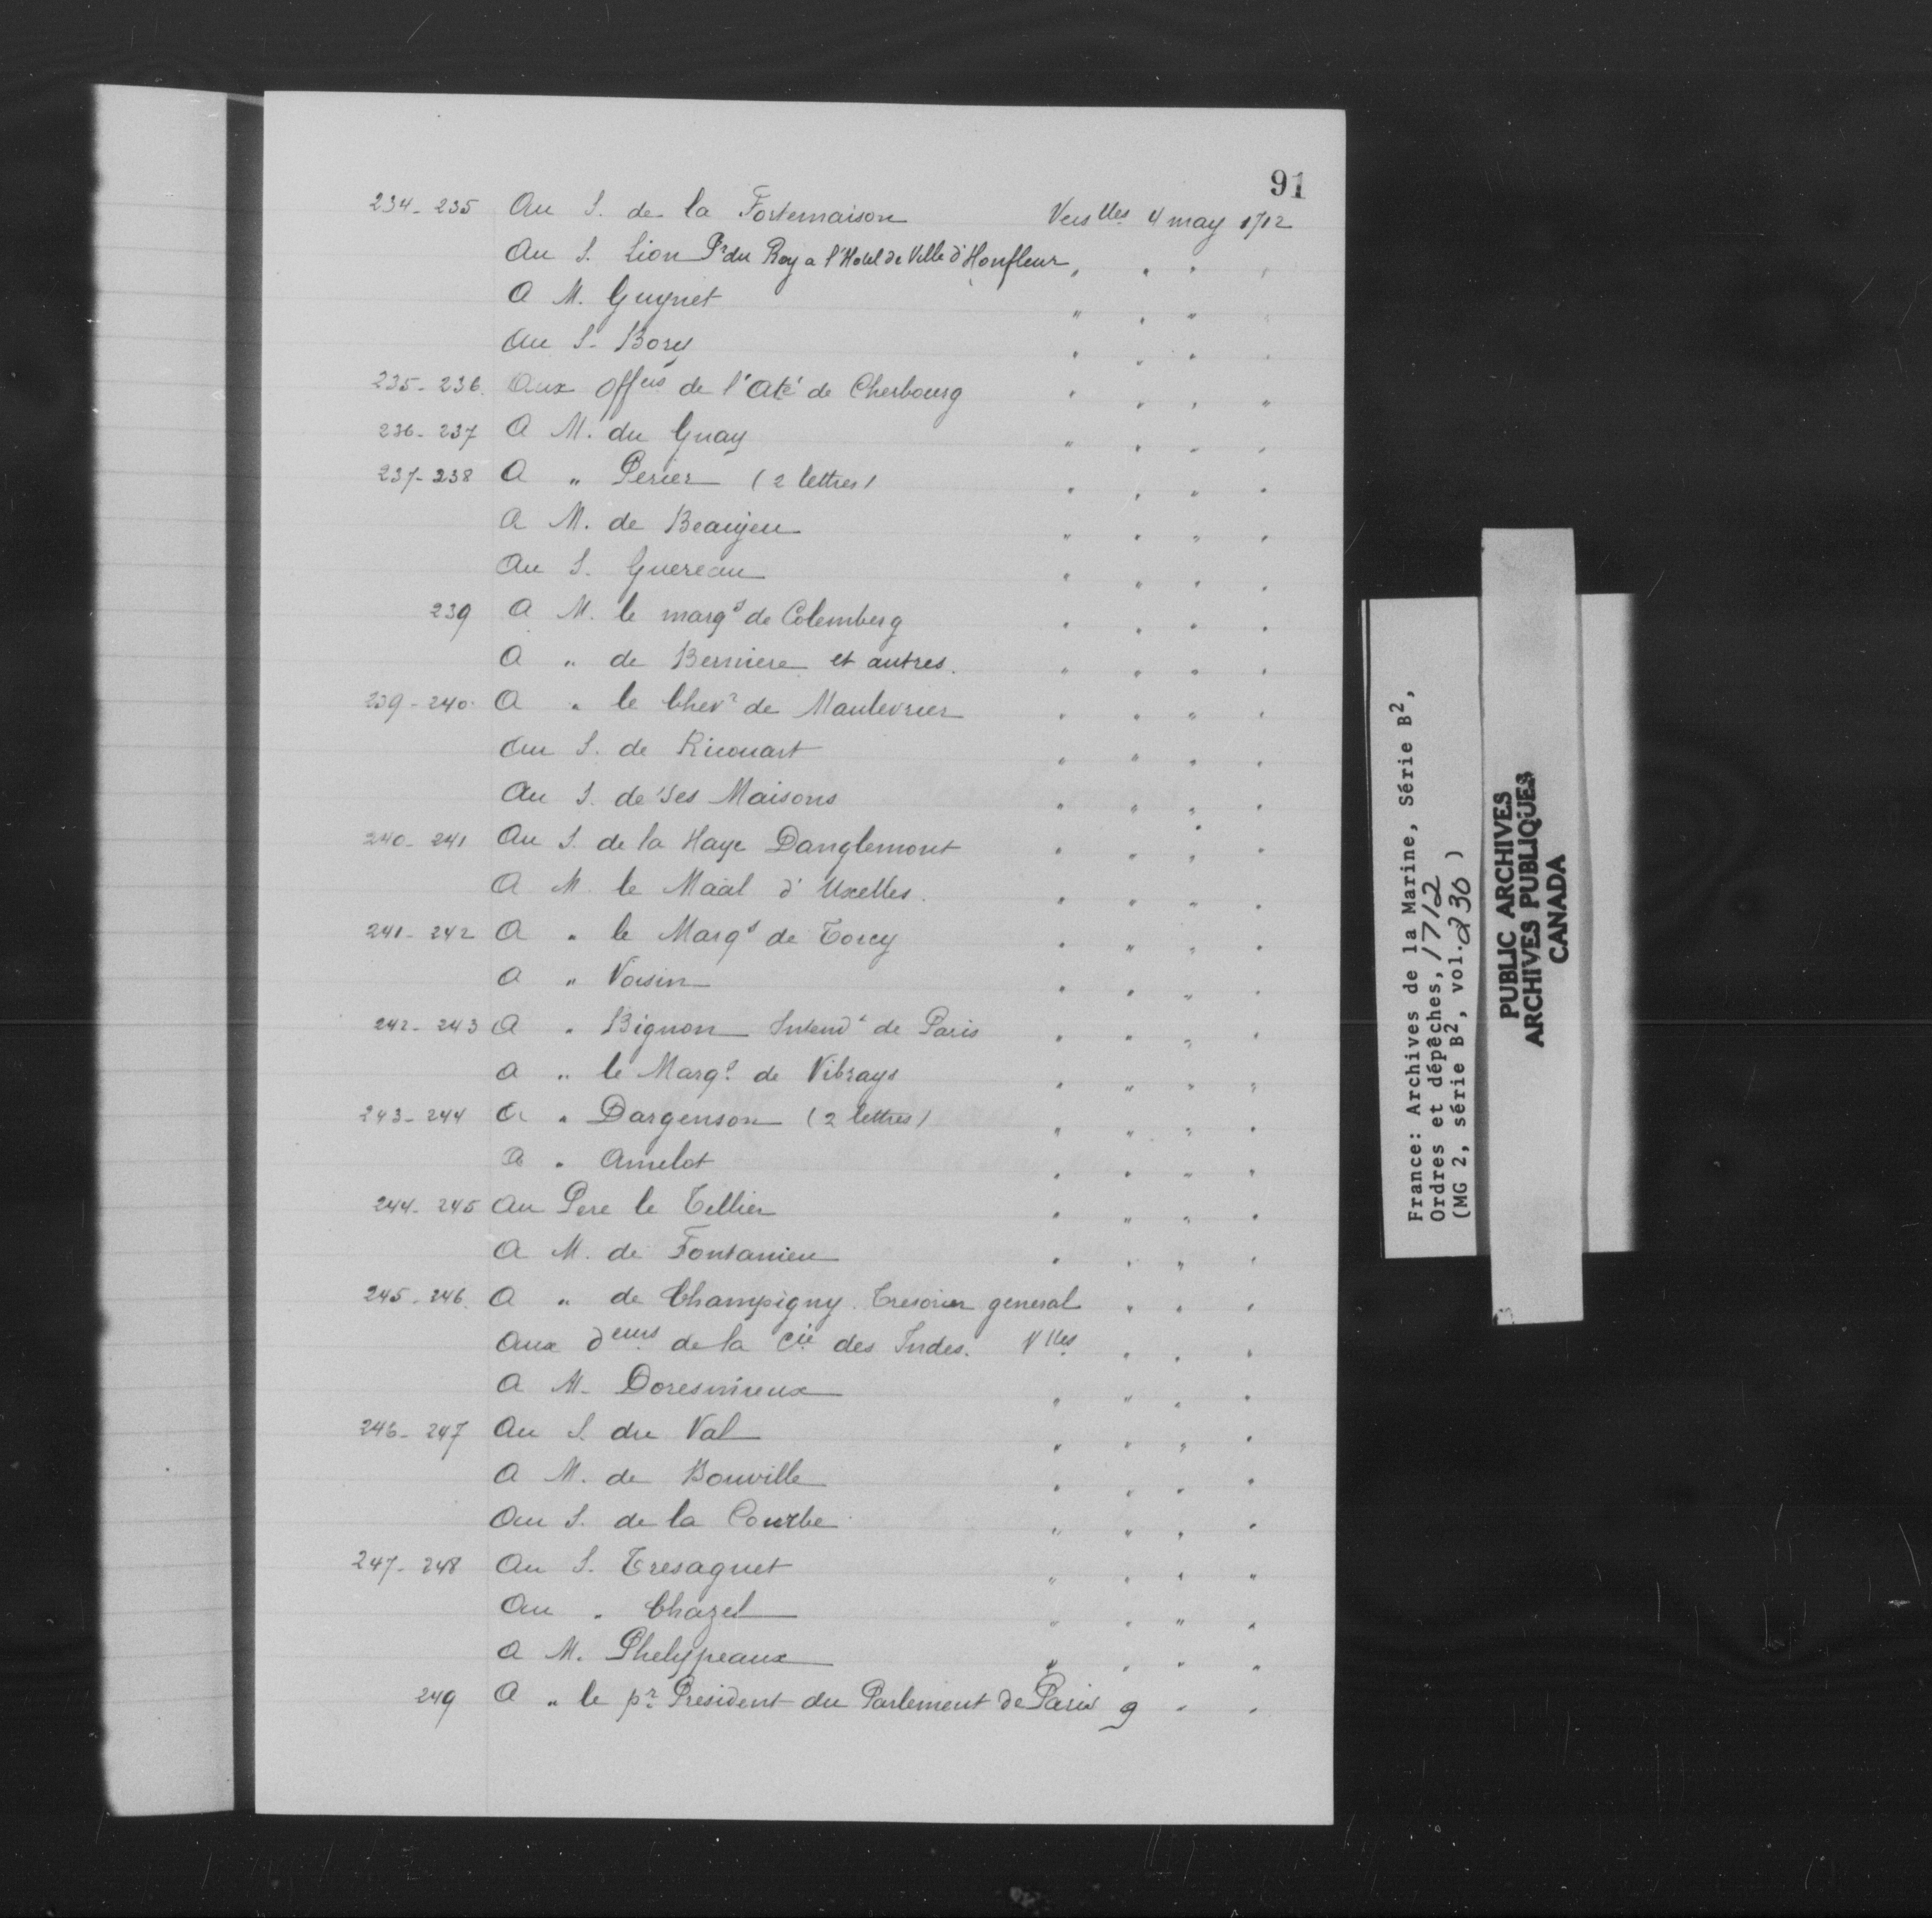 91
234-235 Au S. de la Fortemaison Verslles 4 may 1712
Au S. Lion Pr du Roy a l'Hotel de Ville d'Honfleur " " " "
A M. Guynet " " " "
Au S. Bory " " " "
235-236. Aux offers de l'Até de Cherbourg " " " "
236-237 A M. du Guay " " " "
237-238 A " Perier (2 lettres) " " " "
A M. de Beaujeu " " " "
Au S. Guereau " " " "
239 A M. le marqs de Colemberg " " " "
A " de Berniere et autres. " " " "
239-240. A " le Chevr de Maulevrier " " " "
Au S. de Ricouart " " " "
Au S. de ses Maisons " " " "
240-241 Au S. de la Haye Danglemont " " " "
A M. le Maal d'Uxelles. " " " "
241-242 A " le Marqs de Torcy " " " "
A " Voisin " " " "
242-243 A " Bignon Intendt de Paris " " " "
A " le Marqs de Vibrays " " " "
243-244 A " Dargenson (2 lettres) " " " "
A " Amelot " " " "
244-245 Au Pere le Tellier " " " "
A M. de Fontanieu " " " "
245-246. A " de Champigny Tresorier general " " "
Aux deurs de la Cie des Indes. Vlles " " "
A M. Doresmieux " " " "
246-247 Au S. du Val " " " "
A M. de Bouville " " " "
Au S. de la Courbe " " " "
247-248 Au S. Tresaguet " " " "
Au " Chazel " " " "
A M. Phelypeaux " " " "
249 A " le pr President du Parlement de Paris 9 " "
France: Archives de la Marine, Série B2,
Ordres et dépêches, 1712
(MG 2, série B2, vol. 230)
PUBLIC ARCHIVES
ARCHIVES PUBLIQUES
CANADA